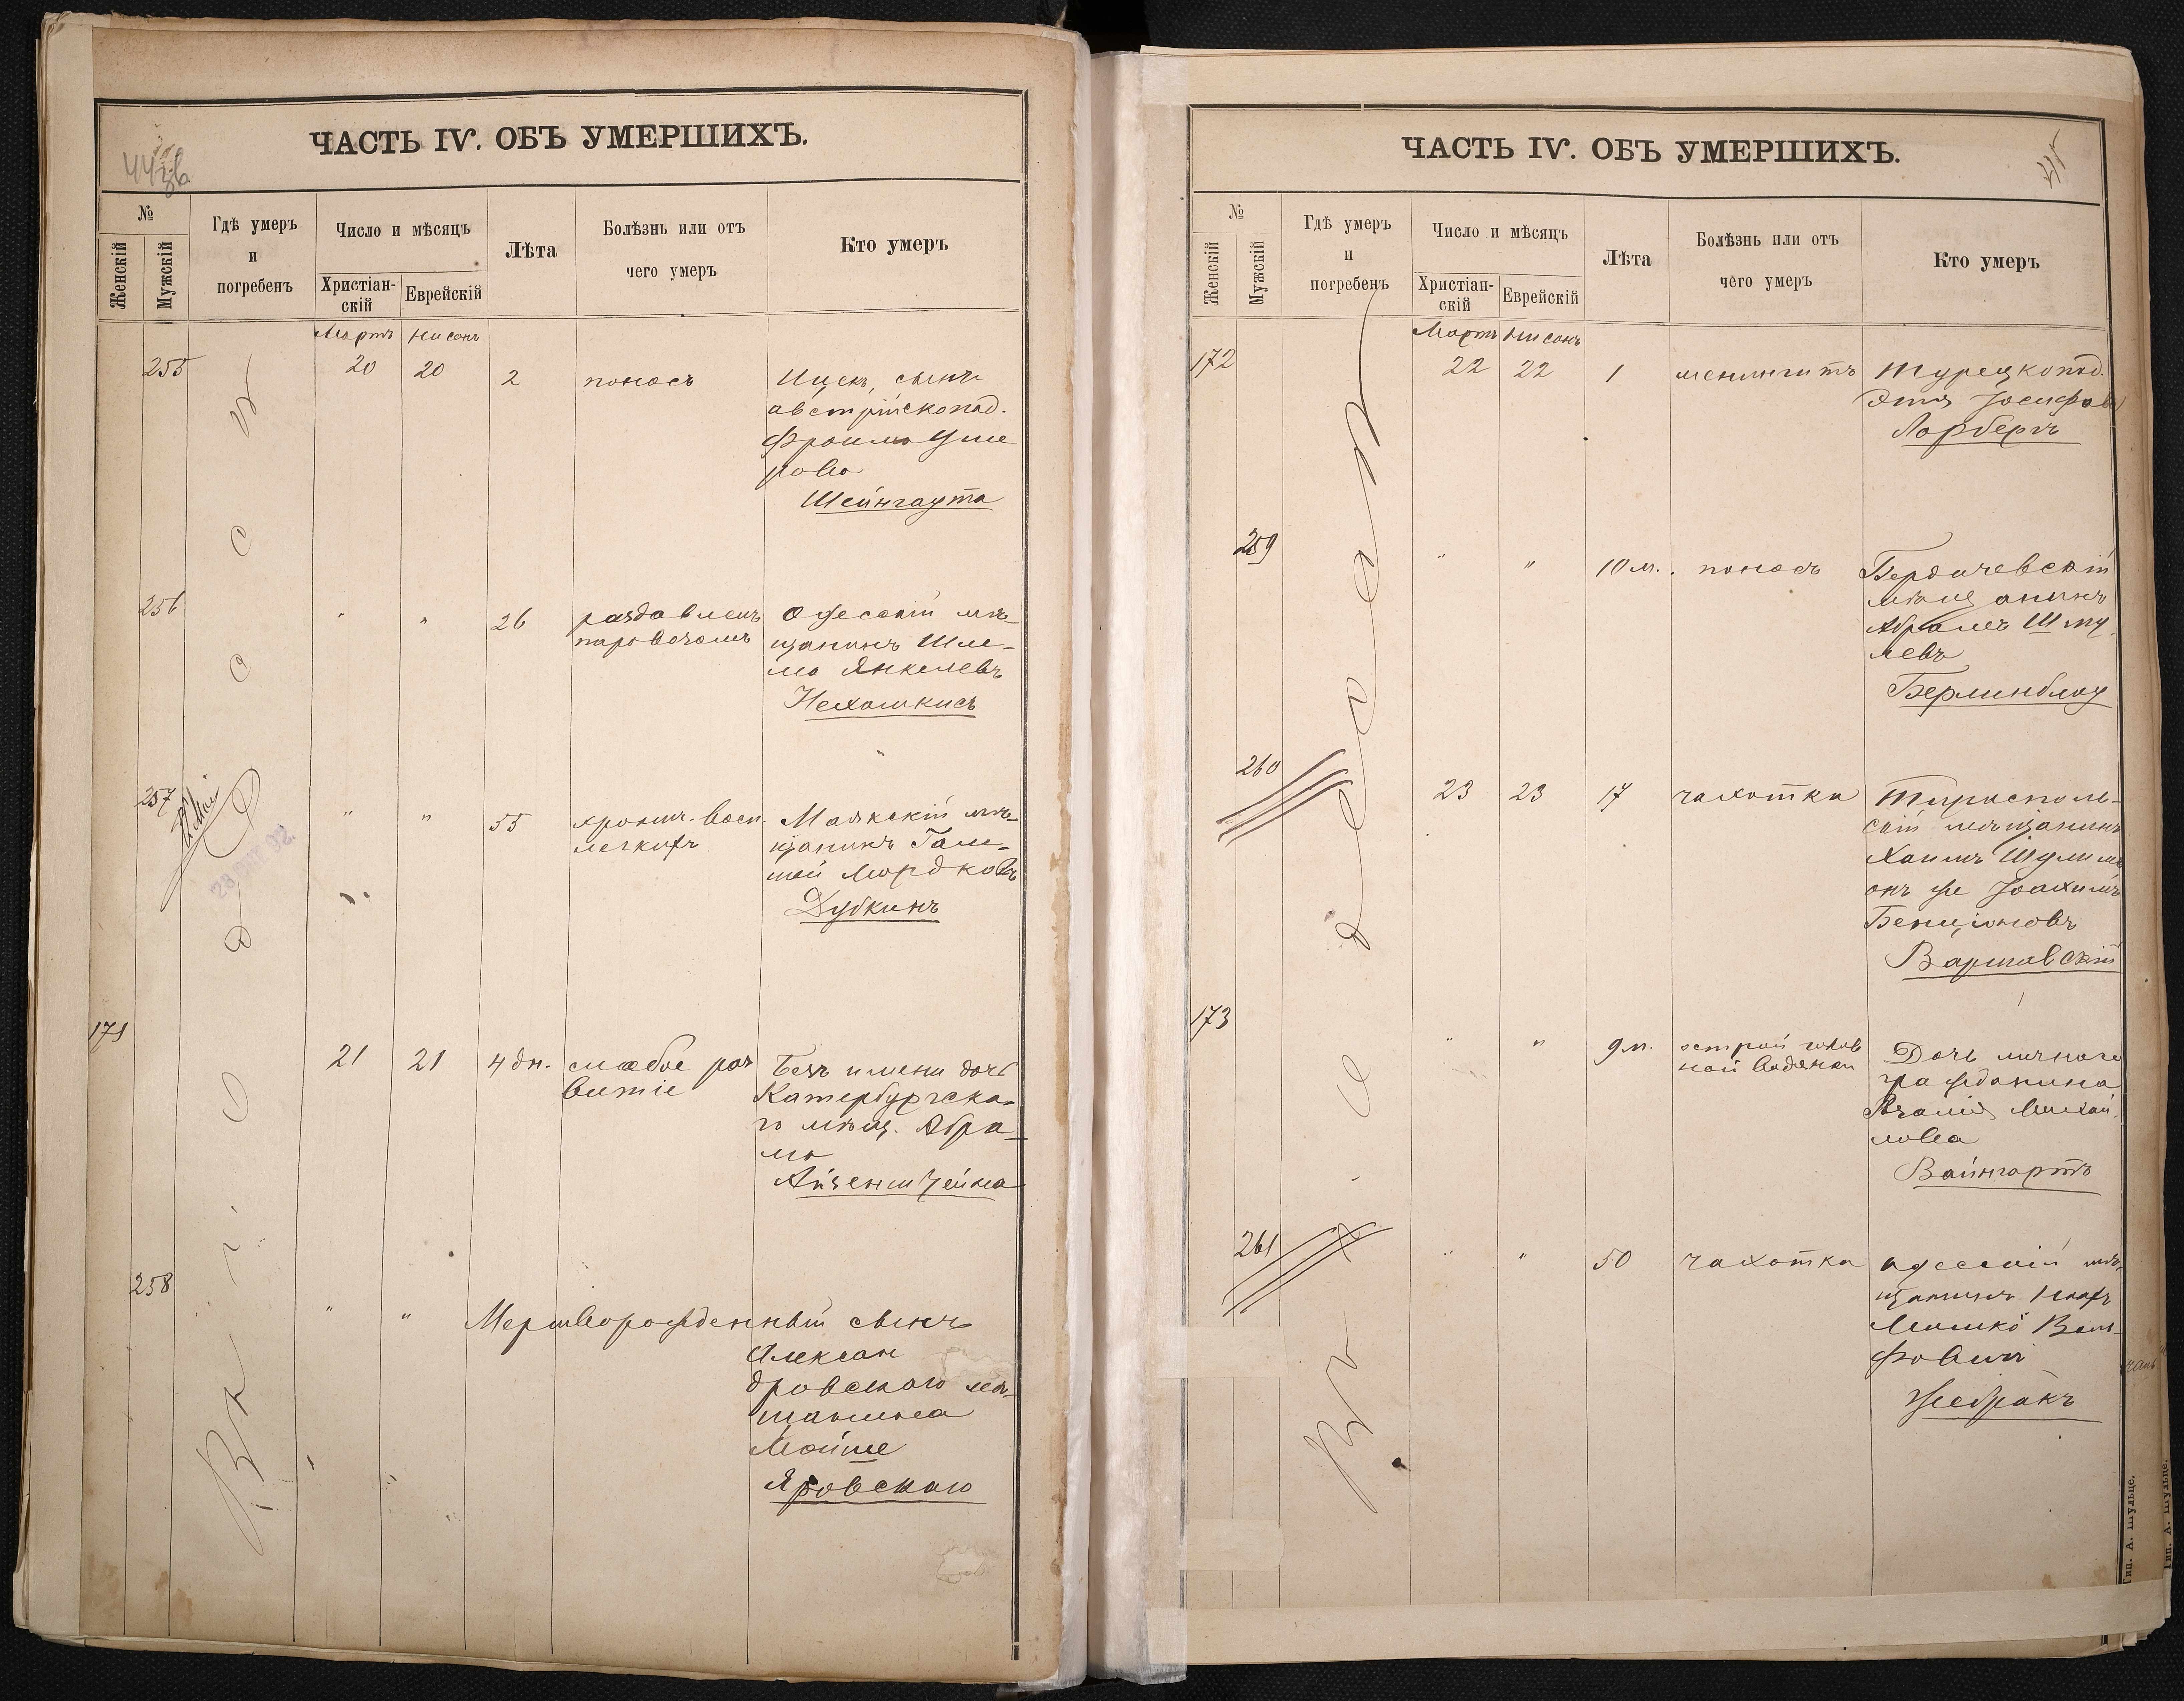 ЧАСТЬ IV. ОБЪ УМЕРШИХЪ.
№
Женскій
Мужскій
Гдѣ умеръ
и
погребенъ
Число и мѣсяцъ
Христіан-
скій
Еврейскій
Лѣта
Болѣзнь или отъ
чего умеръ
Кто умеръ
Въ г. Одессѣ
Мартъ Нисонъ
255 20 20 2 поносъ Ицекъ, сынъ
австрійскопод.
Фроима Уше
рова
Шейнгаута
256 " " 26 раздавленъ Одесскій мѣ-
паровозомъ щанинъ Шле-
ма Янкелевъ
Нехамкисъ
257 " " 55 хронич. восп. Маякскій мѣ-
легкихъ щанинъ Гам-
шей Мордковъ
Дубкинъ
171 21 21 4 дн. слабое раз Безъ имени дочь
витіе Катербургска-
го мѣщ. Абра-
ма
Айзенштейна
258 " " Мертворожденный сынъ
Алексан
дровскаго мѣ-
щанина
Мойше
Яровскаго
ЧАСТЬ IV. ОБЪ УМЕРШИХЪ.
№
Женскій
Мужскій
Гдѣ умеръ
и
погребенъ
Число и мѣсяцъ
Христіан-
скій
Еврейскій
Лѣта
Болѣзнь или отъ
чего умеръ
Кто умеръ
Въ Одессѣ
Мартъ Нисонъ
172 22 22 1 менингитъ Турецкопод.
Этя Іосифова
Лорберъ
259 " " 10 м. поносъ Бердичевскій
мѣщанинъ
Абрамъ Шму
левъ
Берлинблау
260 23 23 17 чахотка Тираспол-
скій мѣщанинъ
Хаимъ Шулимъ
онъ же Іоахимъ
Бенціоновъ
Варшавскій
173 " " 9 м. острой голов Дочь личнаго
ной водянки гражданина
Михай
лова
Вайнгартъ
261 " " 50 чахотка Одесскій мѣ-
щанинъ
Мошко Воль-
фовичъ
Жебракъ
Тип. А. Шульце.
Тип. А. Шульце.